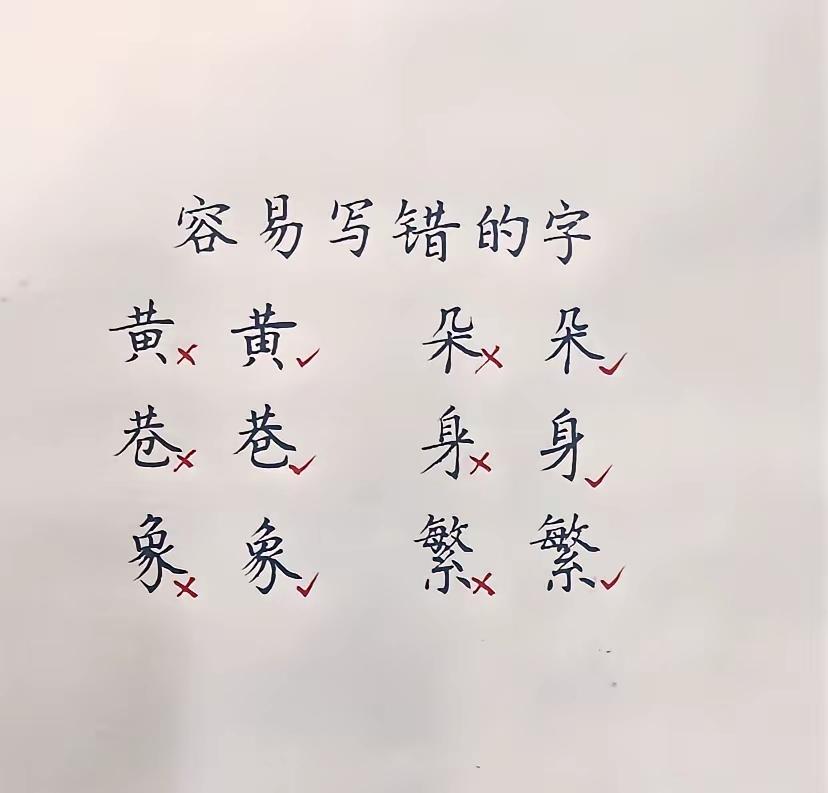 容易写错的字
黄✗ 黄✓ 朵✗ 朵✓
巷✗ 巷✓ 身✗ 身✓
象✗ 象✓ 繁✗ 繁✓